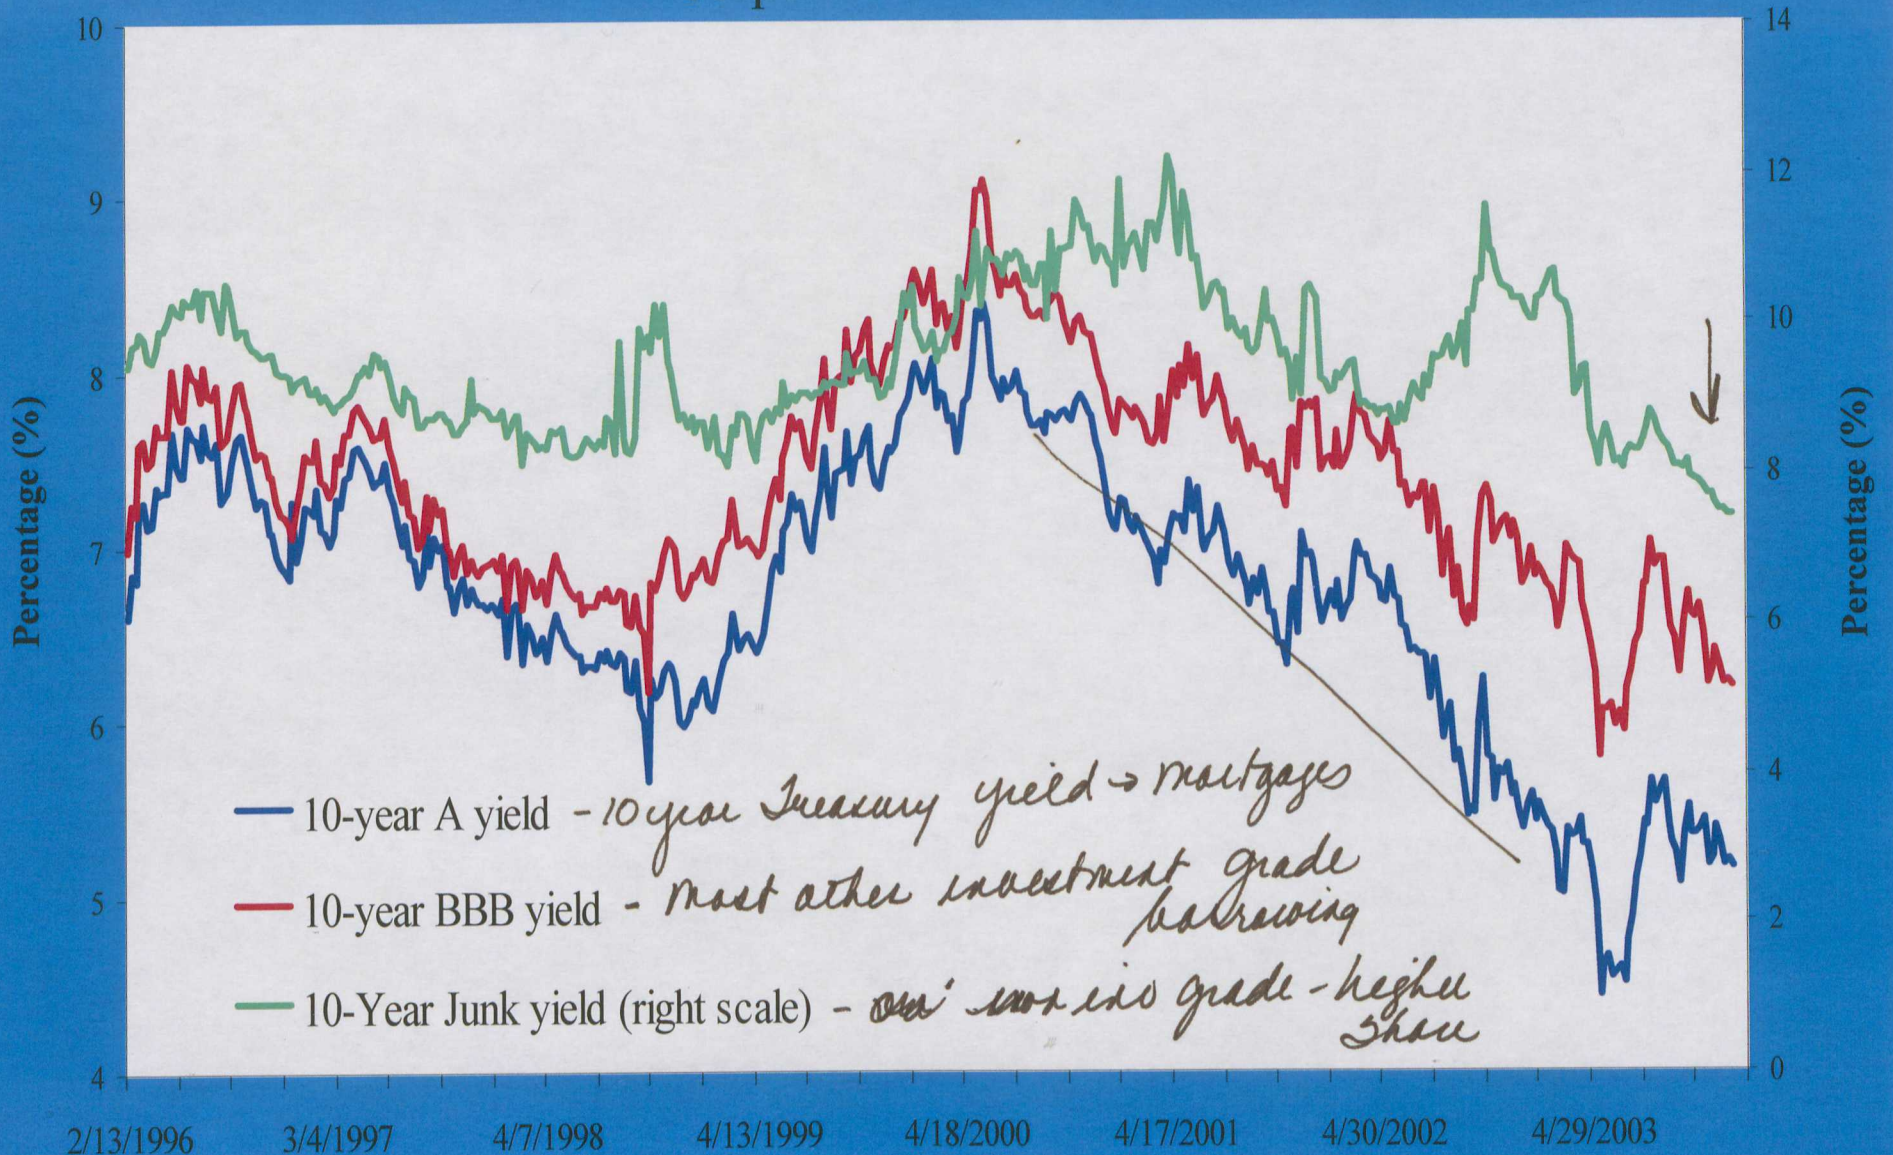 10
9
8
7
6
5
4
Percentage (%)
14
12
10
8
6
4
2
0
Percentage (%)
10-year A yield - 10 year Treasury yield → mortgages
10-year BBB yield - most other investment grade
borrowing
10-Year Junk yield (right scale) - non inv grade - higher
share
2/13/1996 3/4/1997 4/7/1998 4/13/1999 4/18/2000 4/17/2001 4/30/2002 4/29/2003